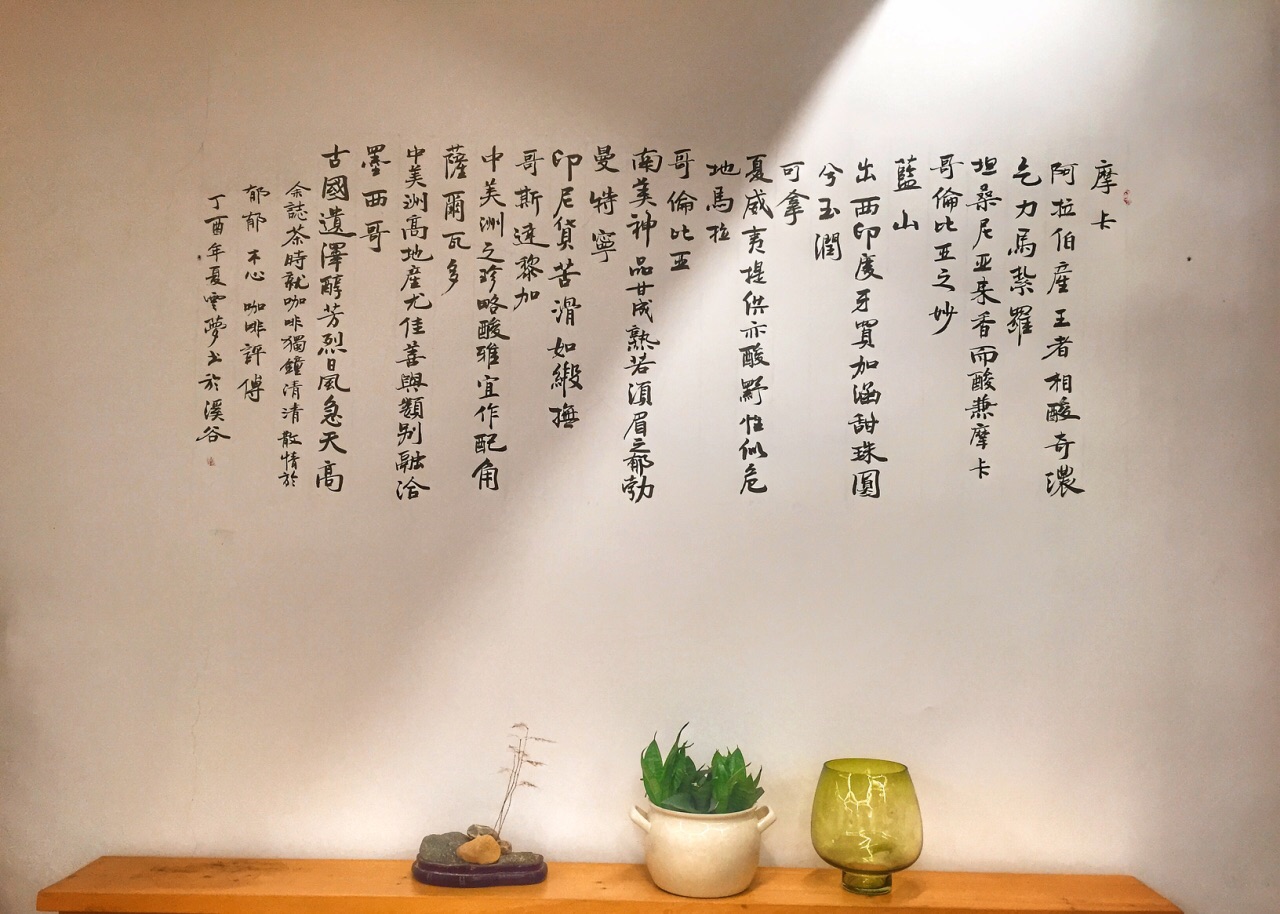 摩卡
阿拉伯產王者相酸奇濃
乞力馬紮羅
坦桑尼亚来香而酸兼摩卡
哥倫比亚之妙
藍山
出西印度牙買加涵甜珠圓
兮玉潤
可拿
夏威夷提供亦酸野性似危
地馬拉
哥倫比亚
南美神品甘成熟若須眉之郁勃
曼特寧
印尼貨苦滑如緞撫
哥斯達黎加
中美洲之珍略酸雖宜作配角
薩爾瓦多
中美洲高地産尤佳善與類别融洽
墨西哥
古國遺澤醇芳烈日風急天高
余誌茶時就咖啡獨鐘清清散情於
郁郁 木心 咖啡評傳
丁酉年夏雲夢书於溪谷